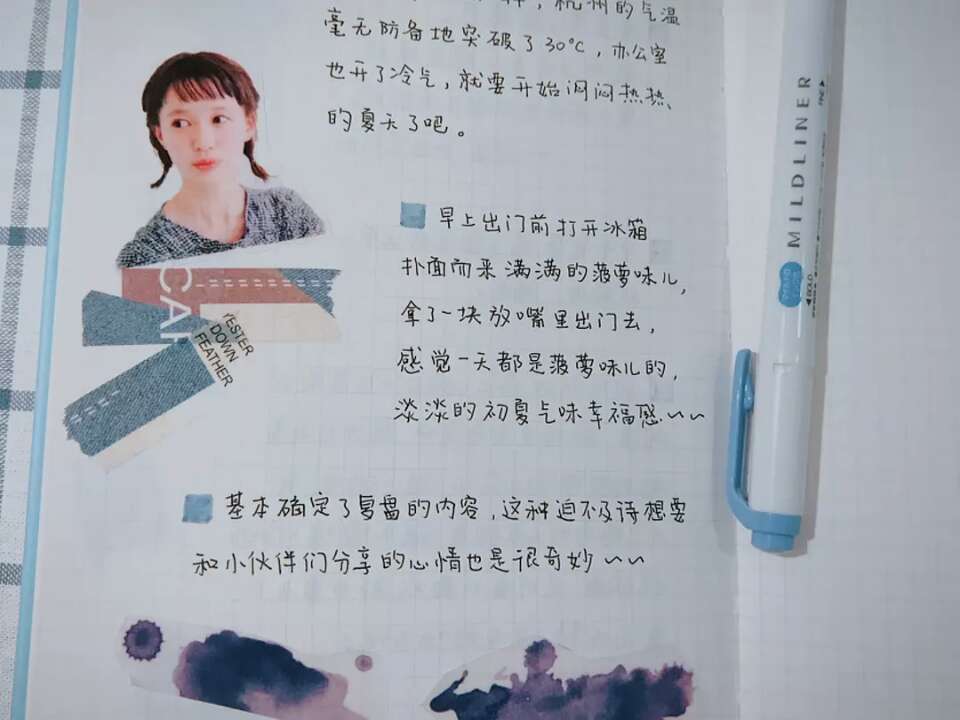 杭州的气温
毫无防备地突破了30°C，办公室
也开了冷气，就要开始闷闷热热
的夏天了吧。
早上出门前打开冰箱
扑面而来满满的菠萝味儿，
拿了一块放嘴里出门去，
感觉一天都是菠萝味儿的，
淡淡的初夏气味幸福感~~
基本确定了复盘的内容，这种迫不及待想要
和小伙伴们分享的心情也是很奇妙~~
CAP
YESTER
DOWN
FEATHER
MILDLINER
BOLD
FINE